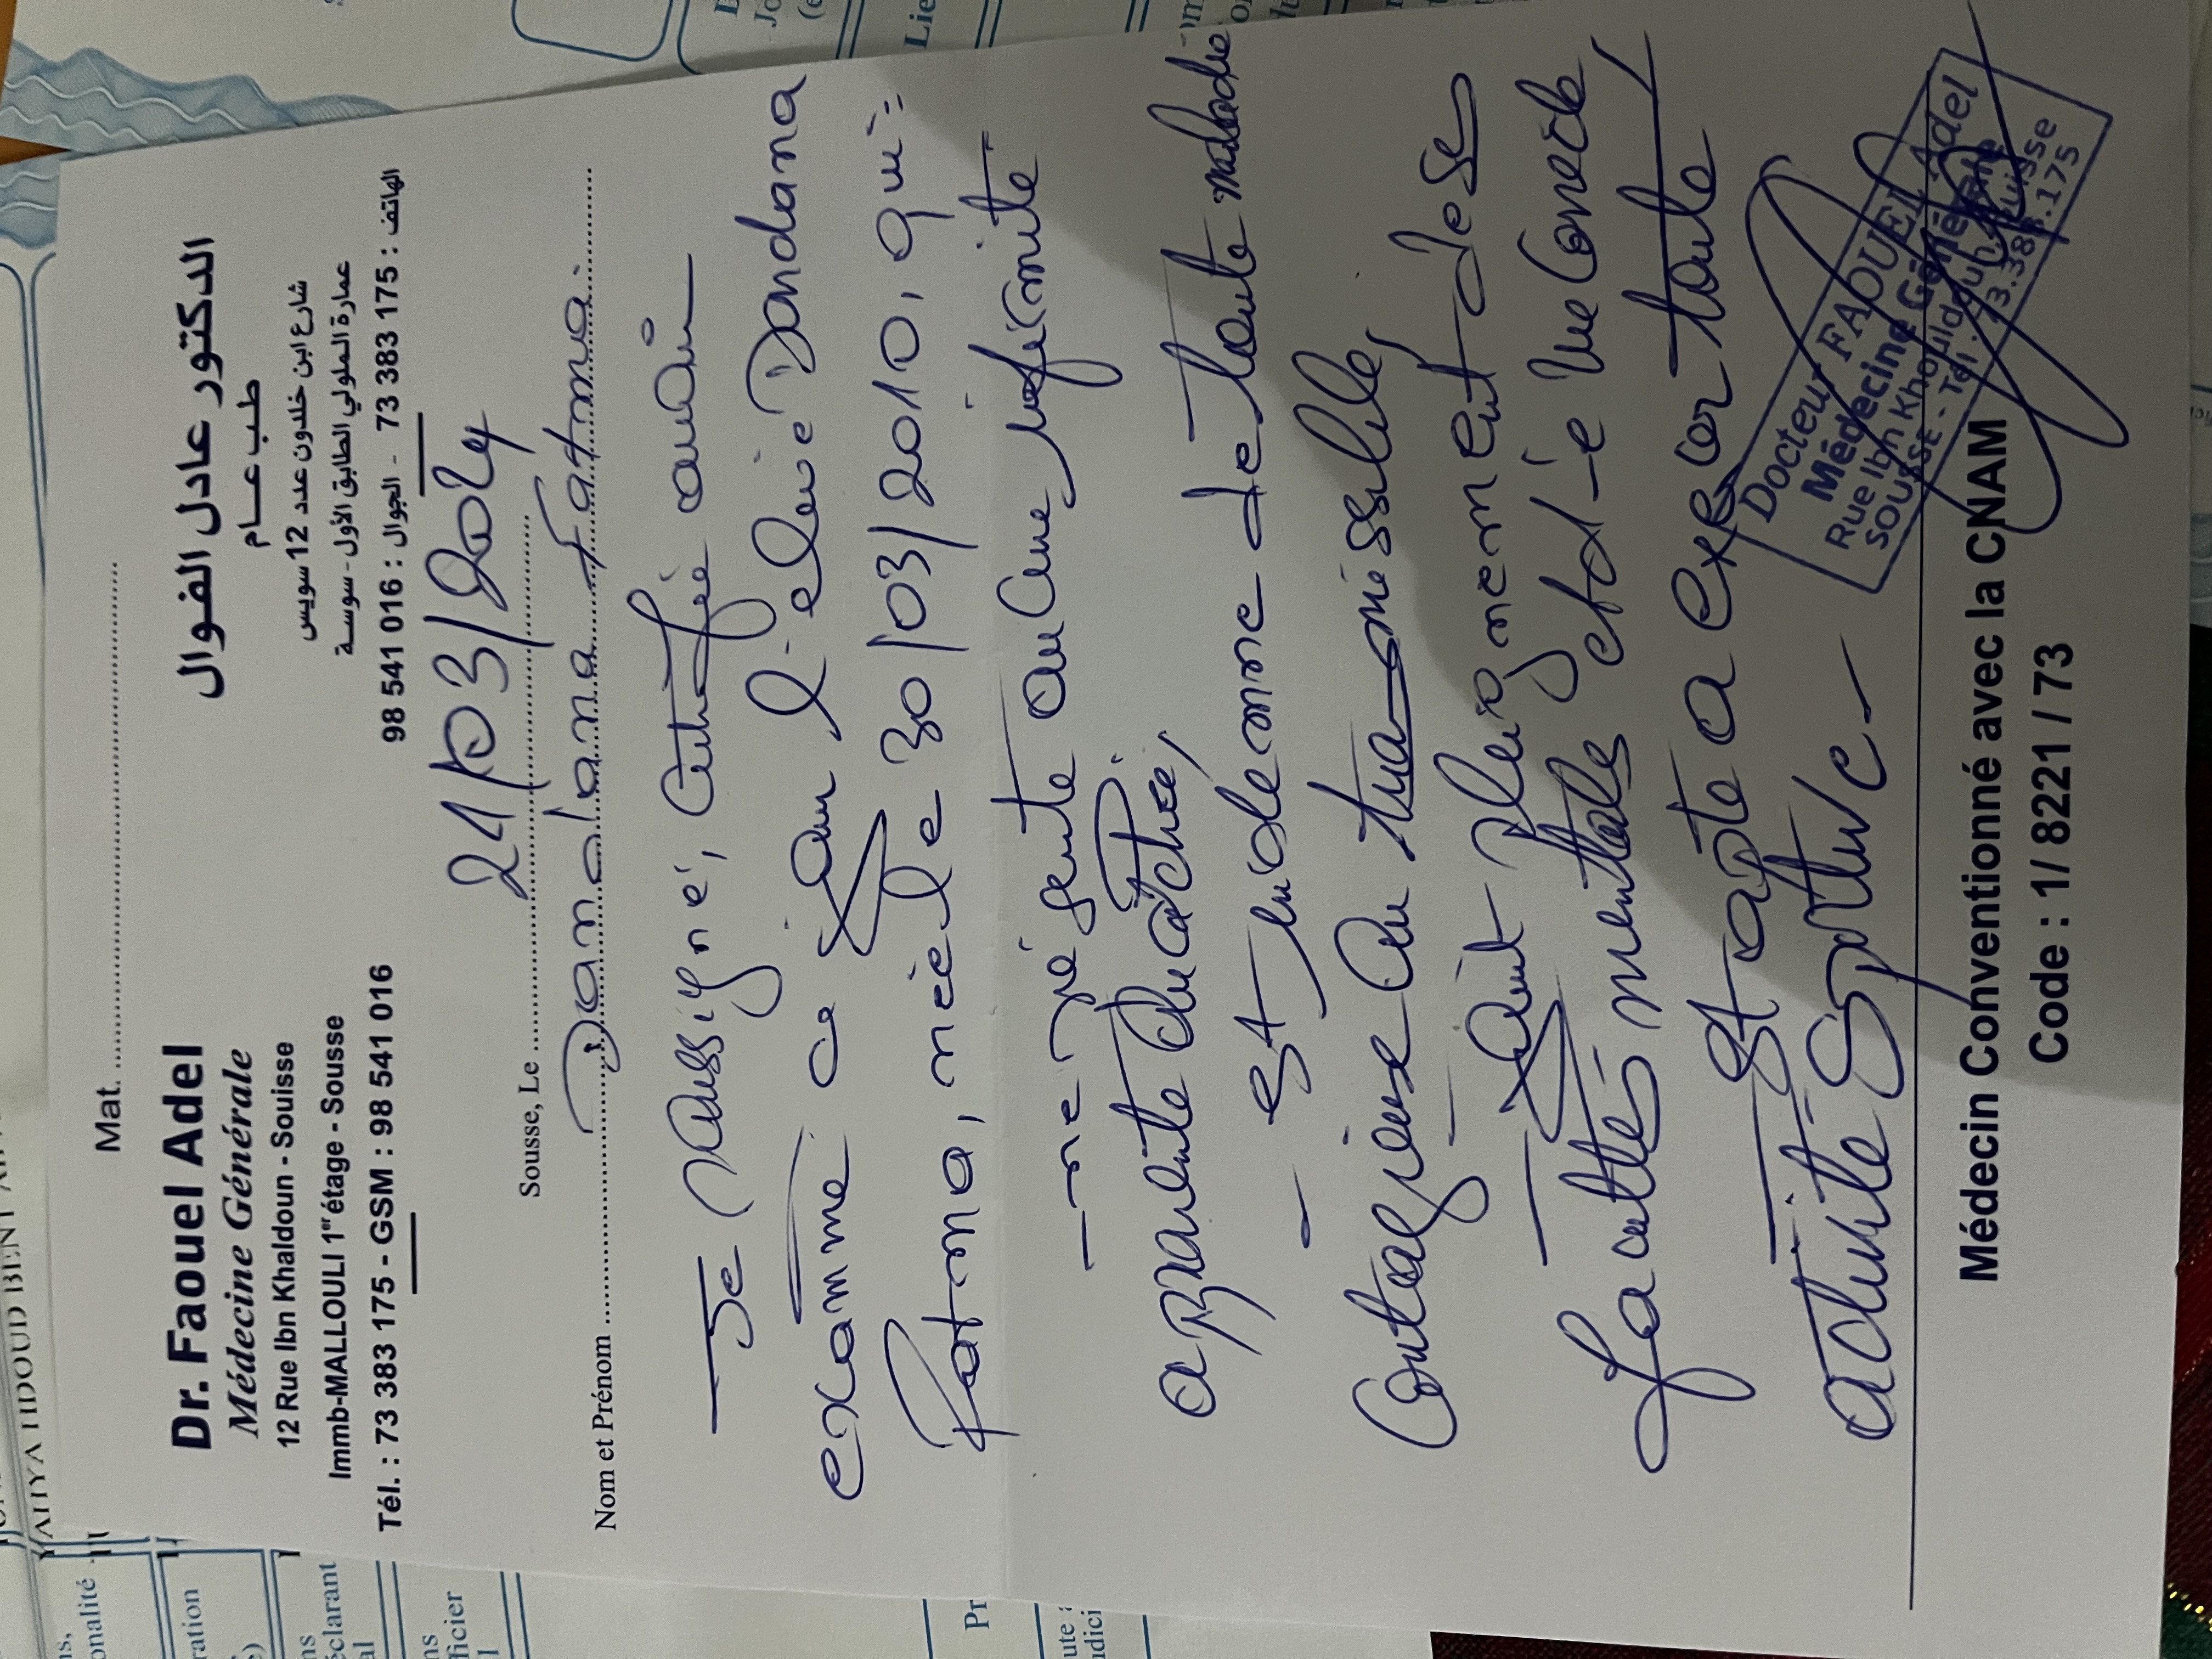 Mat. ..............................
Dr. Faouel Adel
Médecine Générale
12 Rue Ibn Khaldoun - Souisse
Immb-MALLOULI 1er étage - Sousse
Tél. : 73 383 175 - GSM : 98 541 016
الدكتور عادل الفوال
طب عام
شارع ابن خلدون عدد 12 سويس
عمارة الملولي الطابق الأول - سوسة
الهاتف : 175 383 73 - الجوال : 016 541 98
Sousse, Le 21/03/2024
Nom et Prénom Dandana Fatma
Je soussigné, certifie avoir
examiné ce jour l'élève Dandana
Fatma, née le 30/03/2010, qui :
- ne présente aucune infirmité
apparente ou cachée,
- est indemne de toute maladie
contagieuse ou trasmissible,
- jouit pleignement de ses
facultés mentales et d'é vue correcte
- est apte a exercer toute
activité sportive -
Docteur FAOUEL Adel
Médecine Générale
Rue Ibn Khouldoun Souisse
SOUSSE - Tél : 73.383.175
Médecin Conventionné avec la CNAM
Code : 1/ 8221 / 73
YAHYA HDOUD BENT
onalité
ration
éclarant
fficier
Lie